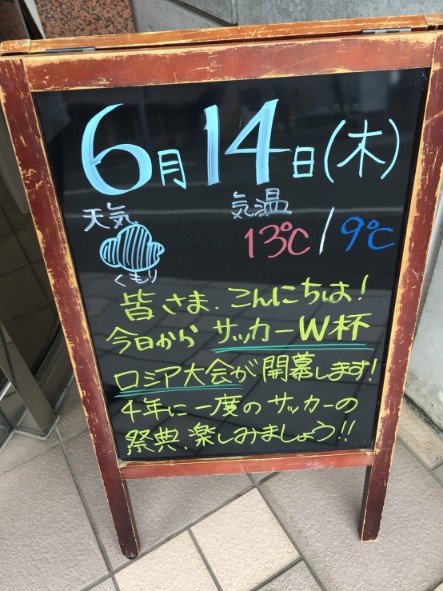 6月14日(木)
天気 気温
くもり 13℃/9℃
皆さま、こんにちは!
今日からサッカーW杯
ロシア大会が開幕します!
4年に一度のサッカーの
祭典、楽しみましょう!!